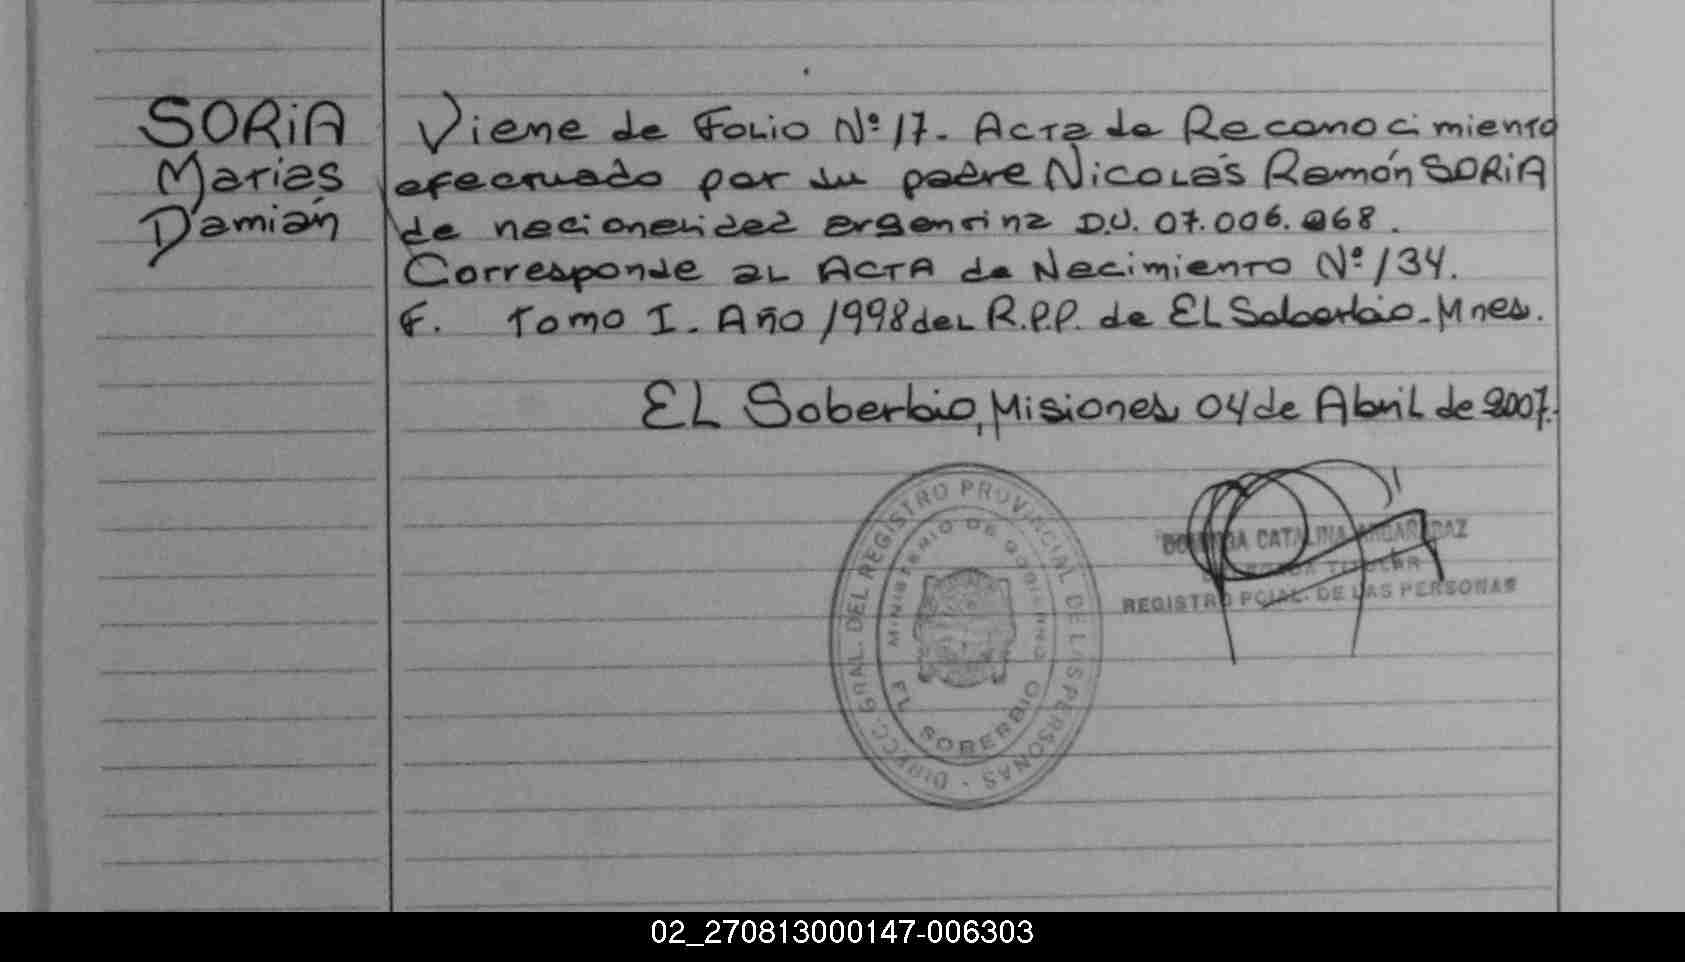 SORiA
Matías
Damián
Viene de Folio Nº 17. Acta de Reconocimiento
efectuado por su padre Nicolás Ramón SORiA
de nacionalidad argentina D.U. 07.006.068.
Corresponde al ACTA de Nacimiento Nº 134.
F. Tomo I. Año 1998 del R.P.P. de El Soberbio - Mnes.
El Soberbio, Misiones 04 de Abril de 2007.
DIRECC. GRAL. DEL REGISTRO PROVINCIAL DE LAS PERSONAS -
MINISTERIO DE GOBIERNO
EL SOBERBIO
CATALINA
TITULAR
REGISTRO PCIAL. DE LAS PERSONAS
02_270813000147-006303